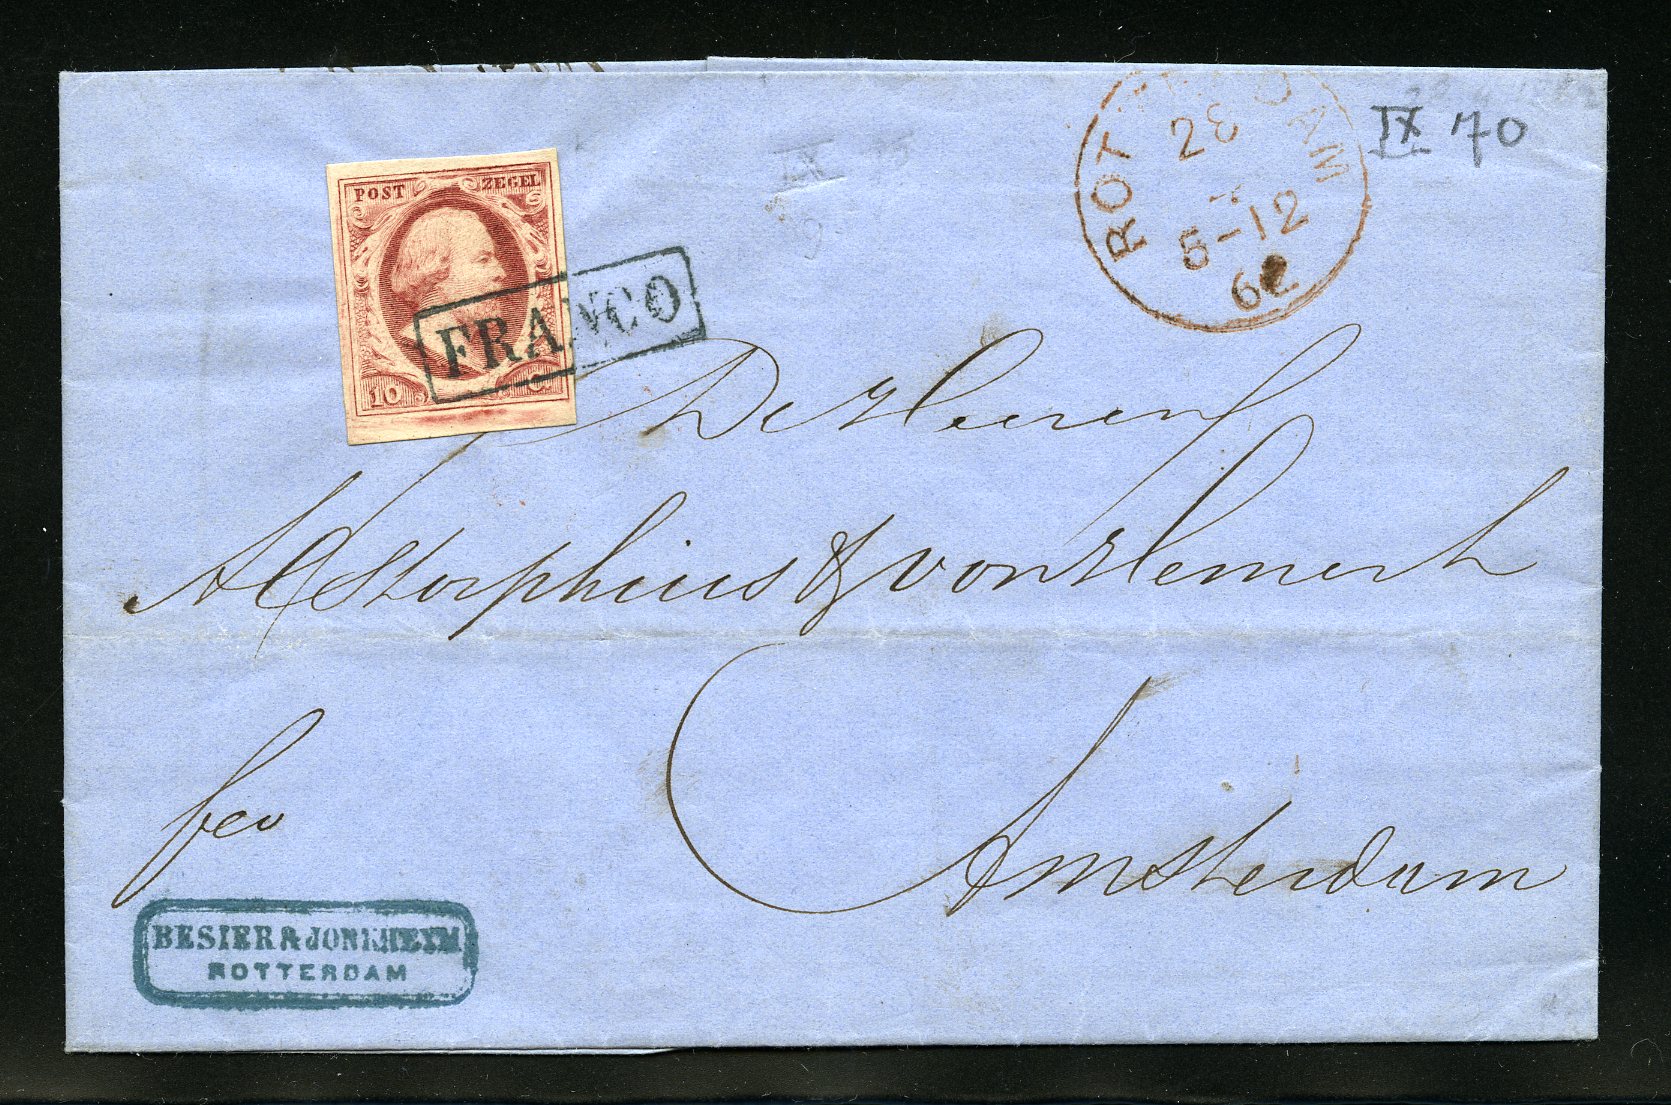 POST ZEGEL
10 C.
FRANCO
ROTTERDAM
28
5-12
62
IX 70
IX
De Heeren
Storphius & von Hemert
fco
Amsterdam
BESIER & JONKHEYM
ROTTERDAM